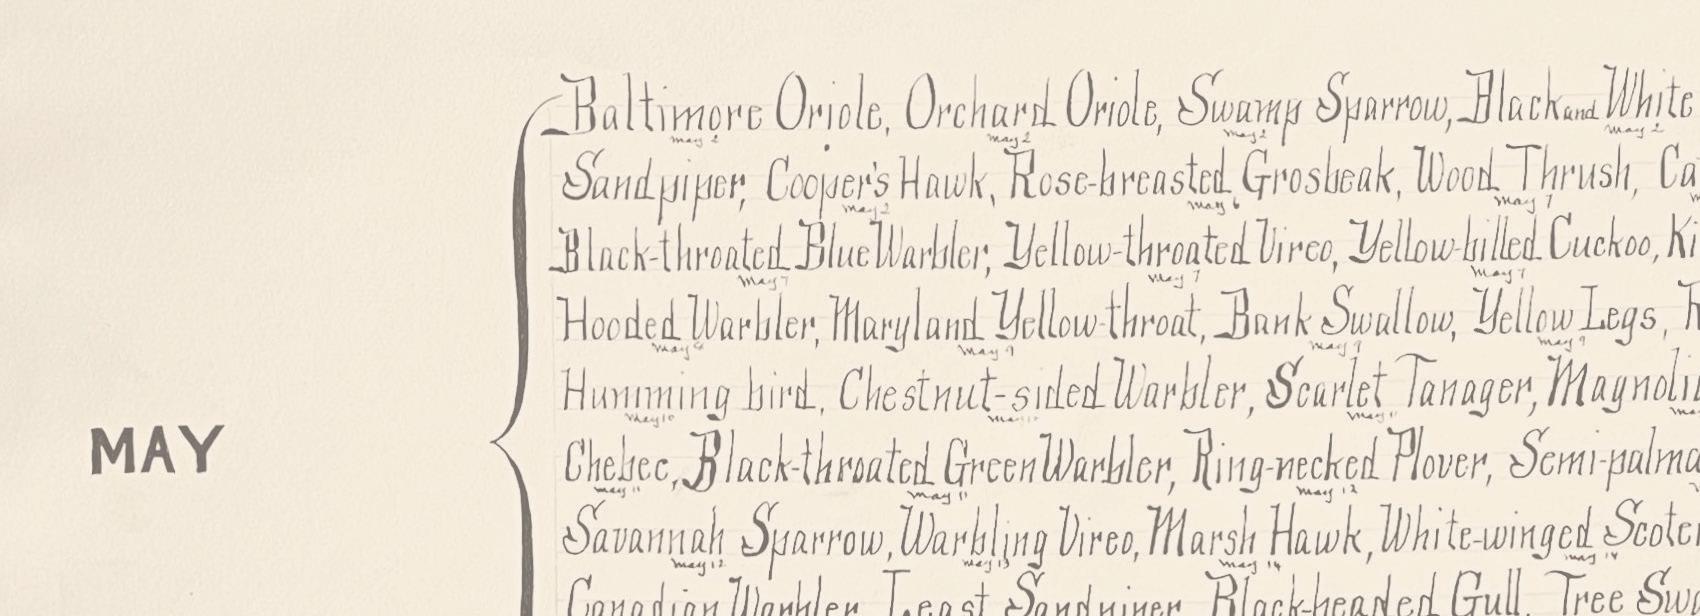 Baltimore Oriole, Orchard Oriole, Swamp Sparrow, Black and White
may 2 may 2 may 2 may 2
Sandpiper, Cooper's Hawk, Rose-breasted Grosbeak, Wood Thrush, Ca
may 2 may 6 may 7
Black-throated Blue Warbler, Yellow-throated Vireo, Yellow-billed Cuckoo, Ki
may 7 may 7 may 7
Hooded Warbler, Maryland Yellow-throat, Bank Swallow, Yellow Legs,
may may 9 may 9 may 9
Humming bird, Chestnut-sided Warbler, Scarlet Tanager, Magnoli
may 10 may may 11
MAY
Chebec, Black-throated Green Warbler, Ring-necked Plover, Semi-palma
may 11 may 11 may 12
Savannah Sparrow, Warbling Vireo, Marsh Hawk, White-winged Scoter
may 12 may 13 may 14 may 14
Canadian Warbler, Least Sandpiper, Black-headed Gull, Tree Swa